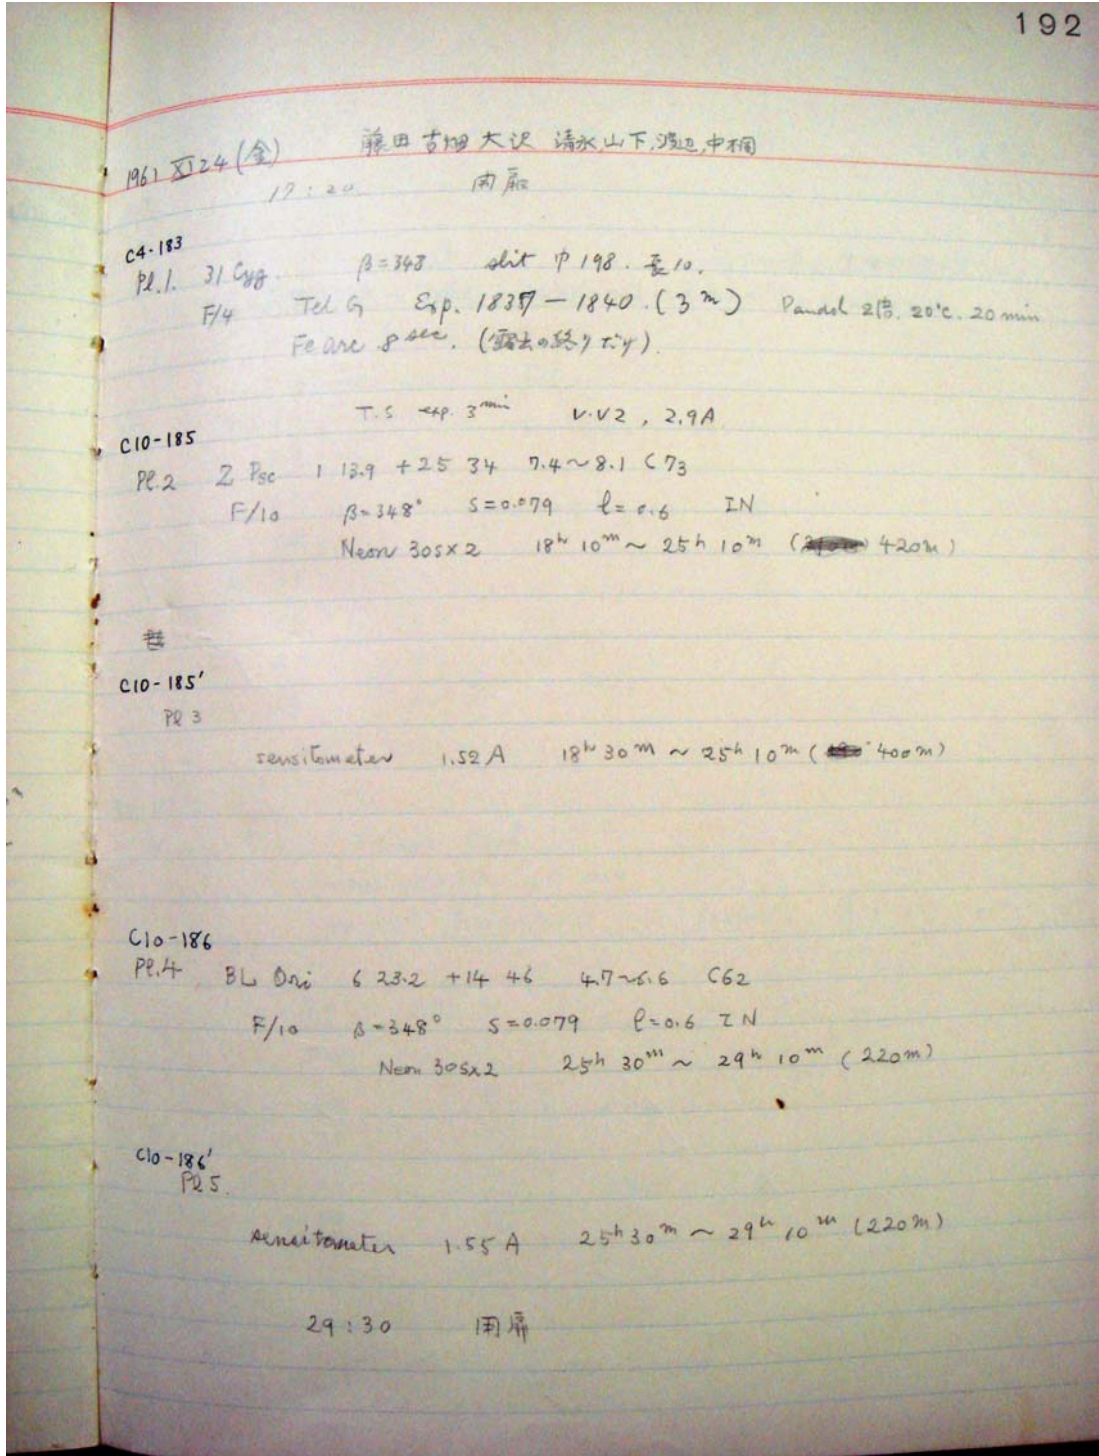 192
1961 XI 24 (金) 藤田 古畑 大沢 清水, 山下, 渡辺, 中桐
17:20
C4-183
Pl.1. 31 Cyg. β=348 slit 巾 198. 長 10.
F/4 Tel G Exp. 1837 — 1840. (3 m) Pandol 2倍. 20°C. 20 min
Fe arc 8 sec. (露出の終りだけ).
T.S exp. 3 min V.V2, 2.9A
C10-185
Pl.2 Z Psc 1 13.9 +25 34 7.4~8.1 C73
F/10 β=348° S=0.079 l=0.6 IN
Neon 30s×2 18h 10m ~ 25h 10m ( 420m)
C10-185'
Pl 3
sensitometer 1.52 A 18h 30m ~ 25h 10m ( 400m)
C10-186
Pl.4 BL Ori 6 23.2 +14 46 4.7~6.6 C62
F/10 β=348° S=0.079 l=0.6 IN
Neon 30s×2 25h 30m ~ 29h 10m (220m)
C10-186'
Pl 5.
sensitometer 1.55 A 25h 30m ~ 29h 10m (220m)
29:30